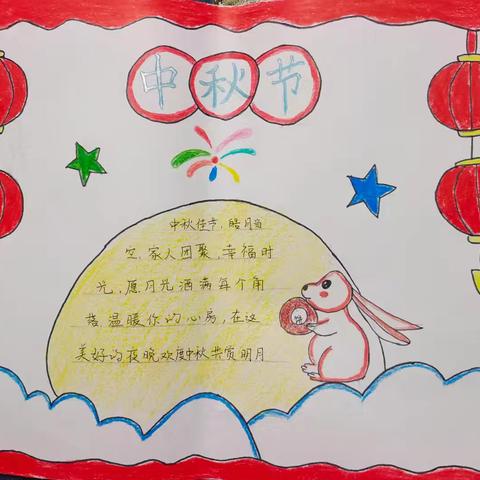 中秋节
中秋佳节，皓月当
空，家人团聚，幸福时
光，愿月光洒满每个角
落，温暖你的心房，在这
美好的夜晚欢度中秋共赏明月